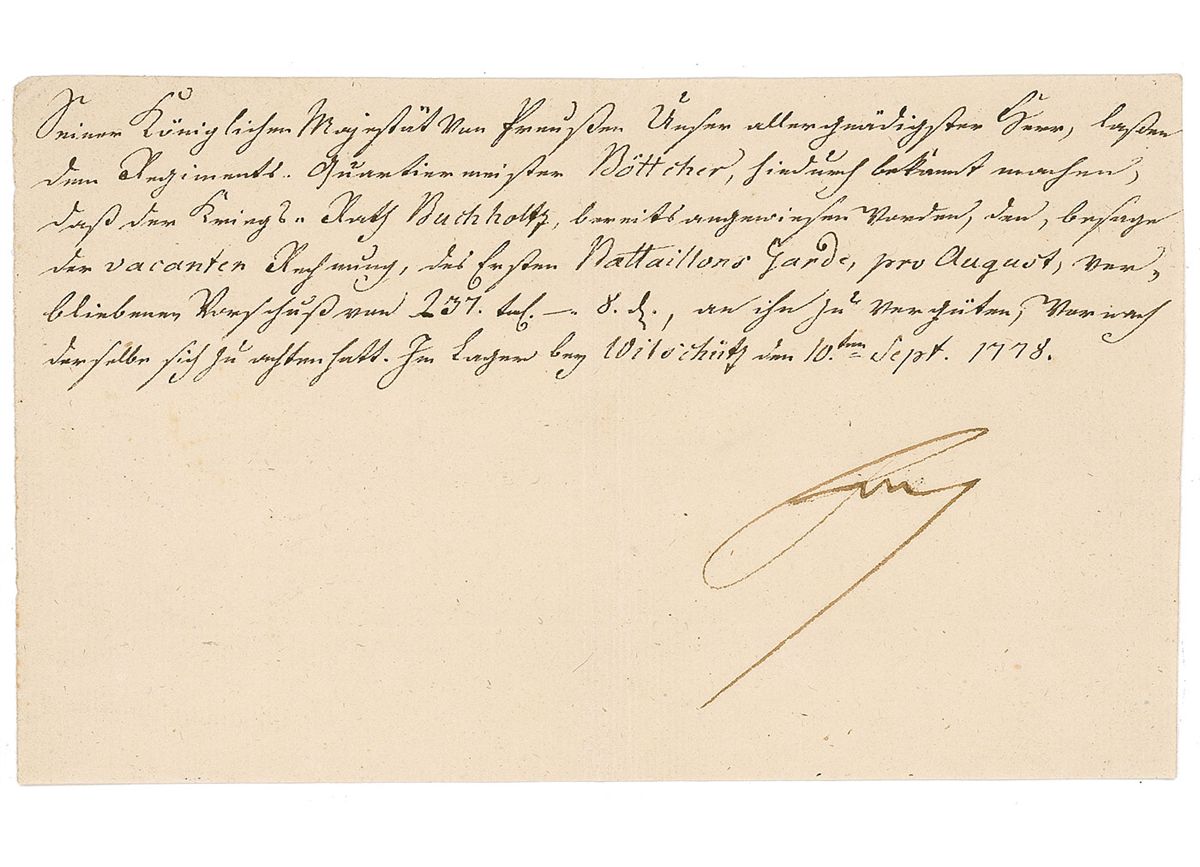 Seiner Königlichen Majestät von Preußen Unser allergnädigster Herr, laßen
dem Regiments-Quartiermeister Böttcher, hiedurch bekannt machen,
daß der Kriegs-Rath Buchholtz, bereits angewiesen worden, den, besage
der vacanten Rechnung, des Ersten Battaillons Garde, pro August, ver-
bliebenen Vorschuß von 237. rtl. —. 8. d., an ihn zu vergüten; Wornach
derselbe sich zu achten hatt. Im Lager bey Wilschütz den 10.ten Sept. 1778.